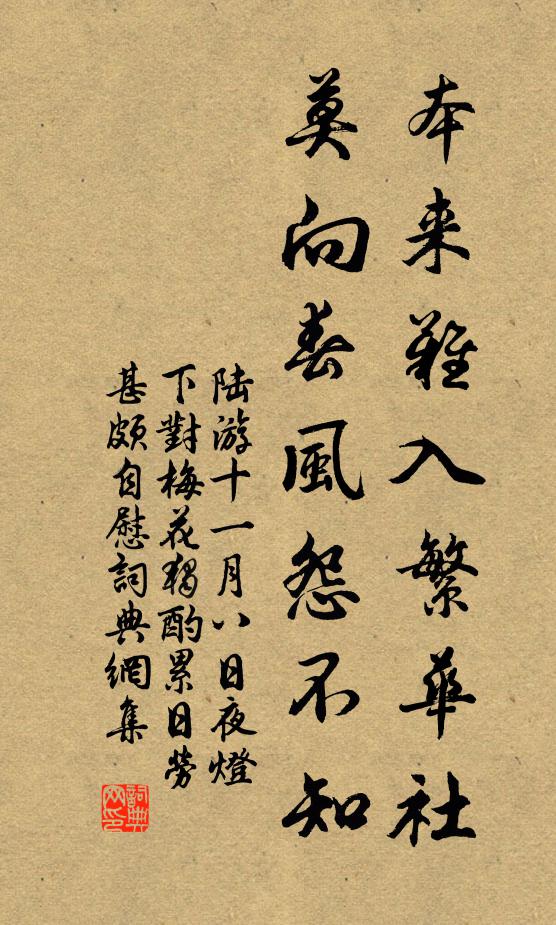 本来難入繁華社
莫向春風怨不知
陆游十一月八日夜燈
下對梅花獨酌累日勞
甚頗自慰詞典網集
詞典
网印